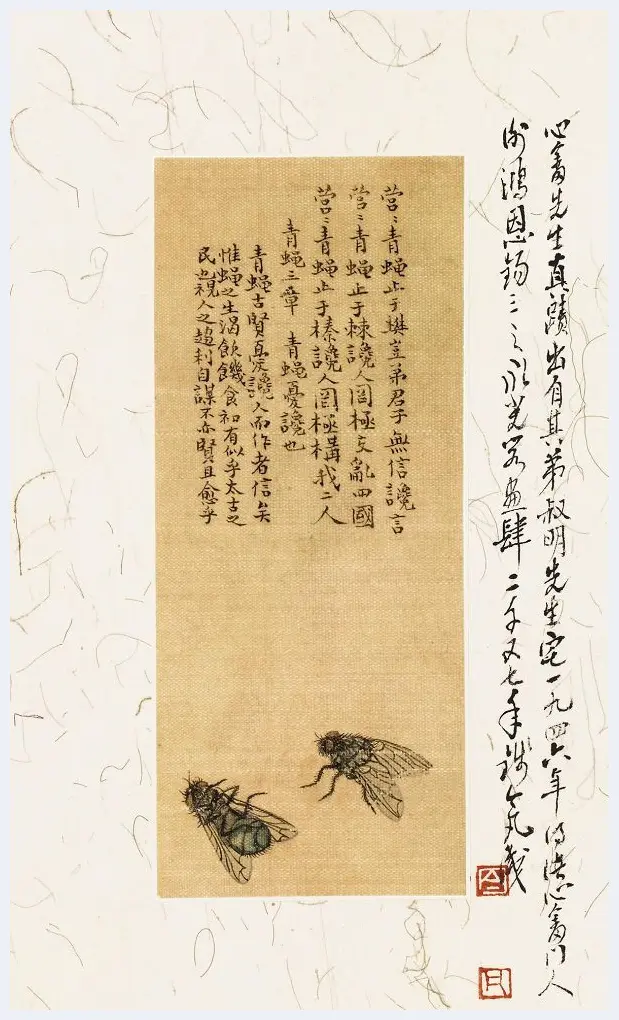 心畬先生真蹟出自其弟叔明先生宅一九四六年得識心畬門人
鴻恩錫三之 畫肆二千又七年
營〻青蝇止于樊豈弟君子無信讒言
營〻青蝇止于棘讒人罔極交亂四國
營〻青蝇止于榛讒人罔極構我二人
青蝇三章 青蝇憂讒也
青蝇古賢憂讒人而作者信矣
惟蝇之生渴飲饑食初有似乎太古之
民也視人之趨利自謀不亦賢且愈乎